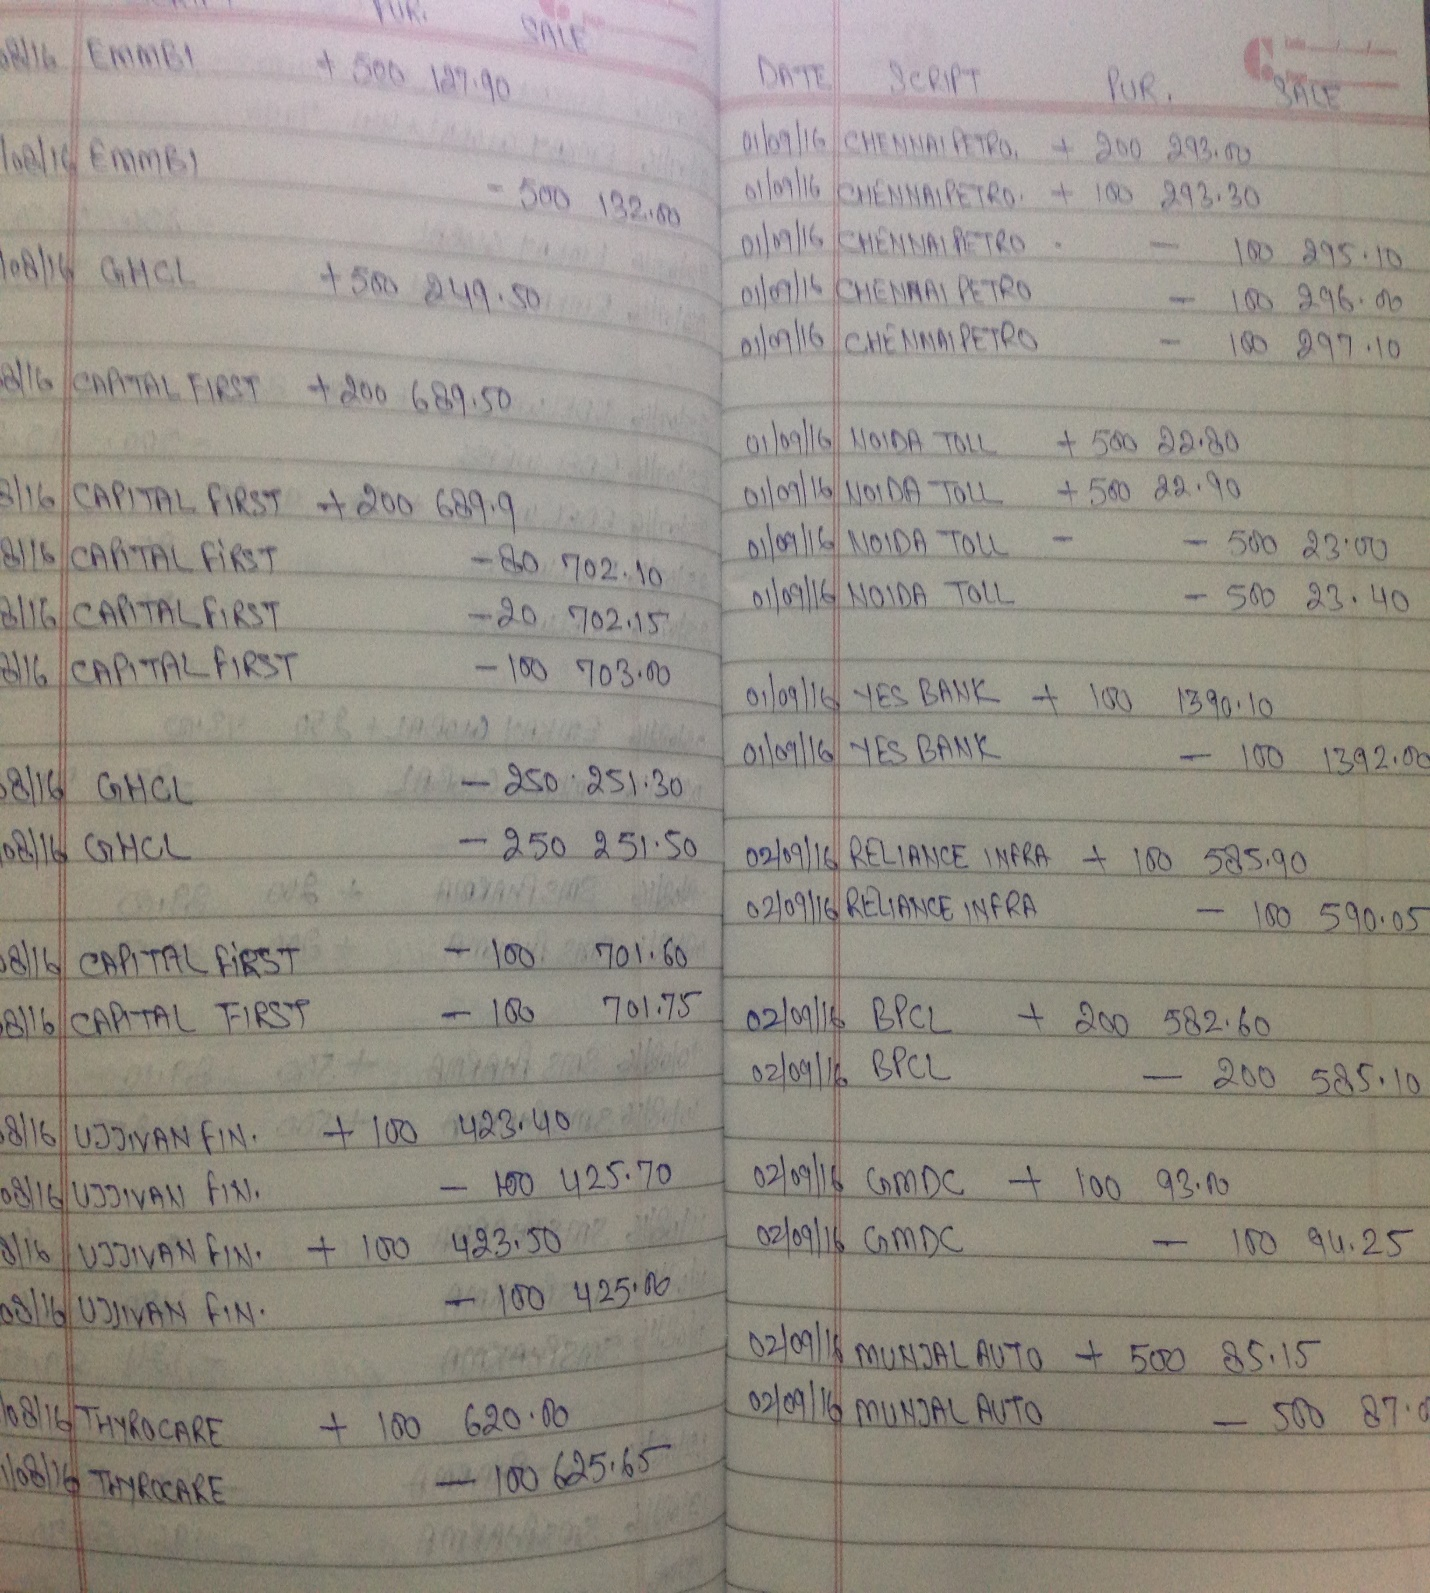 PUR. SALE
08/16 EMMBI + 500 127.90
/08/16 EMMBI - 500 132.00
/08/16 GHCL +500 249.50
8/16 CAPITAL FIRST +200 689.50
8/16 CAPITAL FIRST + 200 689.9
8/16 CAPITAL FIRST -80 702.10
8/16 CAPITAL FIRST -20 702.15
8/16 CAPITAL FIRST -100 703.00
08/16 GHCL - 250 251.30
08/16 GHCL - 250 251.50
08/16 CAPITAL FIRST - 100 701.60
08/16 CAPITAL FIRST - 100 701.75
08/16 UJJIVAN FIN. + 100 423.40
08/16 UJJIVAN FIN. - 100 425.70
8/16 UJJIVAN FIN. + 100 423.50
08/16 UJJIVAN FIN. - 100 425.00
/08/16 THYROCARE + 100 620.00
/08/16 THYROCARE - 100 625.65
DATE SCRIPT PUR. SALE
01/09/16 CHENNAI PETRO. + 200 293.00
01/09/16 CHENNAI PETRO. + 100 293.30
01/09/16 CHENNAI PETRO. - 100 295.10
01/09/16 CHENNAI PETRO - 100 296.00
01/09/16 CHENNAI PETRO - 100 297.10
01/09/16 NOIDA TOLL + 500 22.80
01/09/16 NOIDA TOLL + 500 22.90
01/09/16 NOIDA TOLL - - 500 23.00
01/09/16 NOIDA TOLL - 500 23.40
01/09/16 YES BANK + 100 1390.10
01/09/16 YES BANK - 100 1392.00
02/09/16 RELIANCE INFRA + 100 585.90
02/09/16 RELIANCE INFRA - 100 590.05
02/09/16 BPCL + 200 582.60
02/09/16 BPCL - 200 585.10
02/09/16 GMDC + 100 93.00
02/09/16 GMDC - 100 94.25
02/09/16 MUNJAL AUTO + 500 85.15
02/09/16 MUNJAL AUTO - 500 87.0